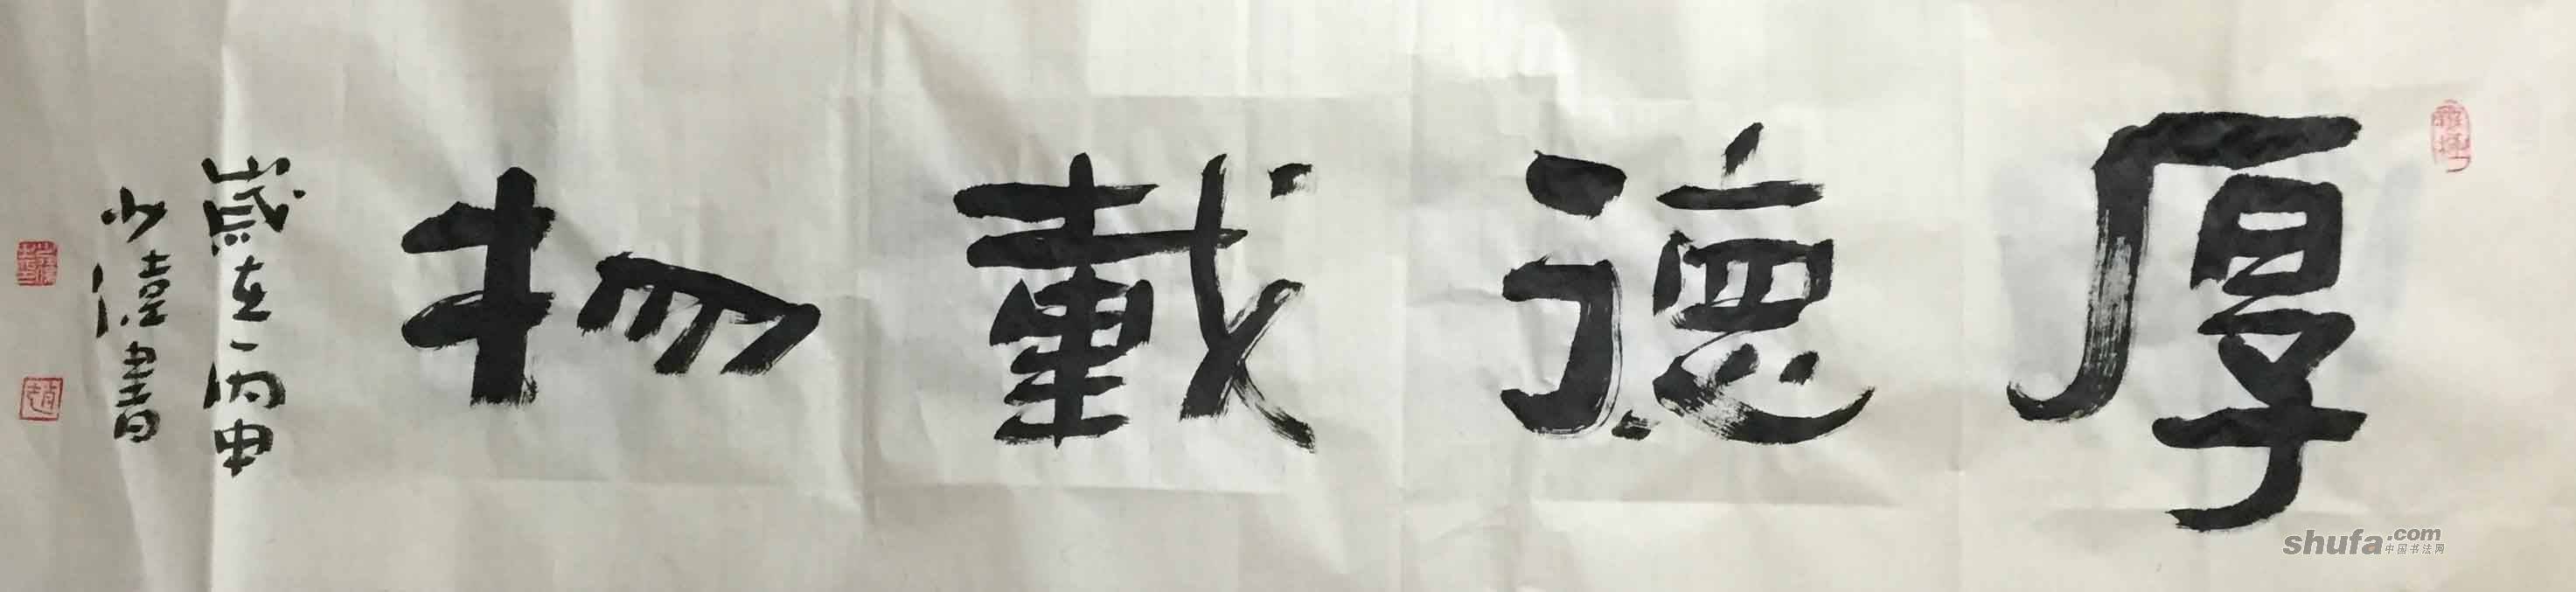 厚德載物
歲在丙申
少偉書
shufa.com
中国书法网